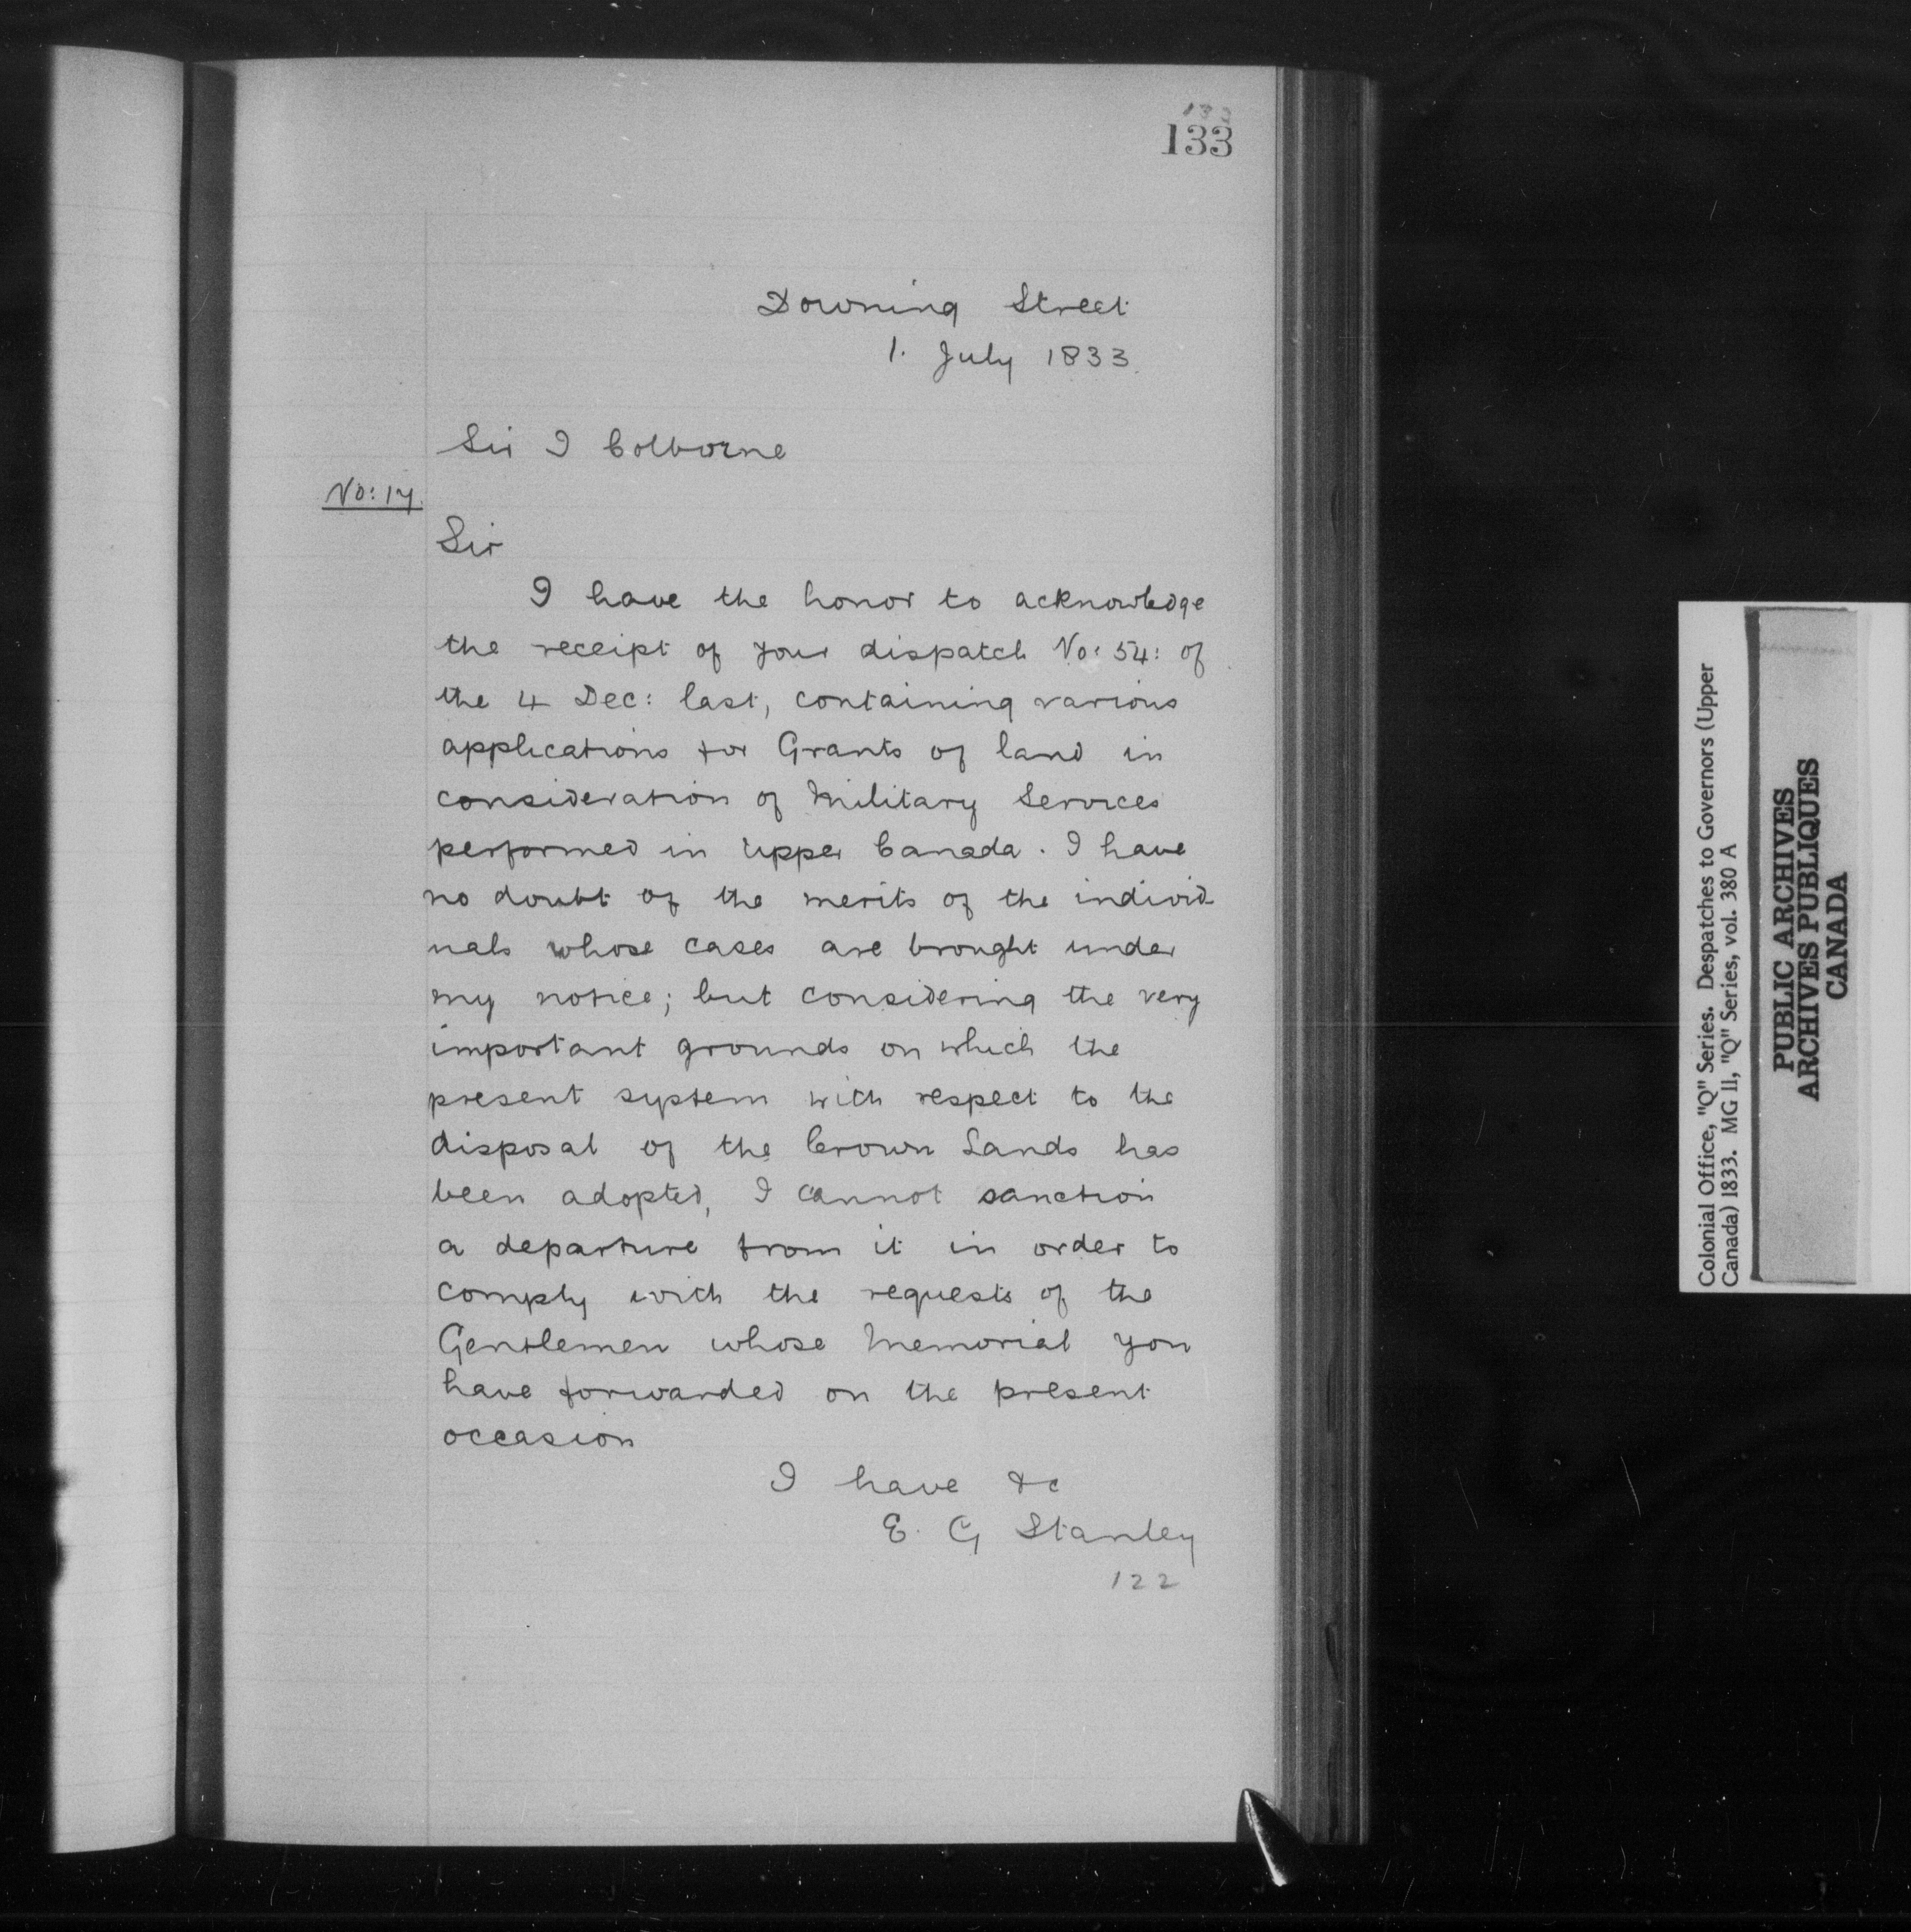 133
Downing Street
1. July 1833.
Sir J Colborne
No: 17.
Sir
I have the honor to acknowledge
the receipt of your dispatch No: 54: of
the 4 Dec: last, containing various
applications for Grants of land in
consideration of Military Services
performed in Upper Canada. I have
no doubt of the merits of the individ
uals whose cases are brought under
my notice; but considering the very
important grounds on which the
present system with respect to the
disposal of the Crown Lands has
been adopted, I cannot sanction
a departure from it in order to
comply with the requests of the
Gentlemen whose Memorial you
have forwarded on the present
occasion
I have &c
E. G Stanley
122
Colonial Office, "Q" Series. Despatches to Governors (Upper
Canada) 1833. MG 11, "Q" Series, vol. 380 A
PUBLIC ARCHIVES
ARCHIVES PUBLIQUES
CANADA